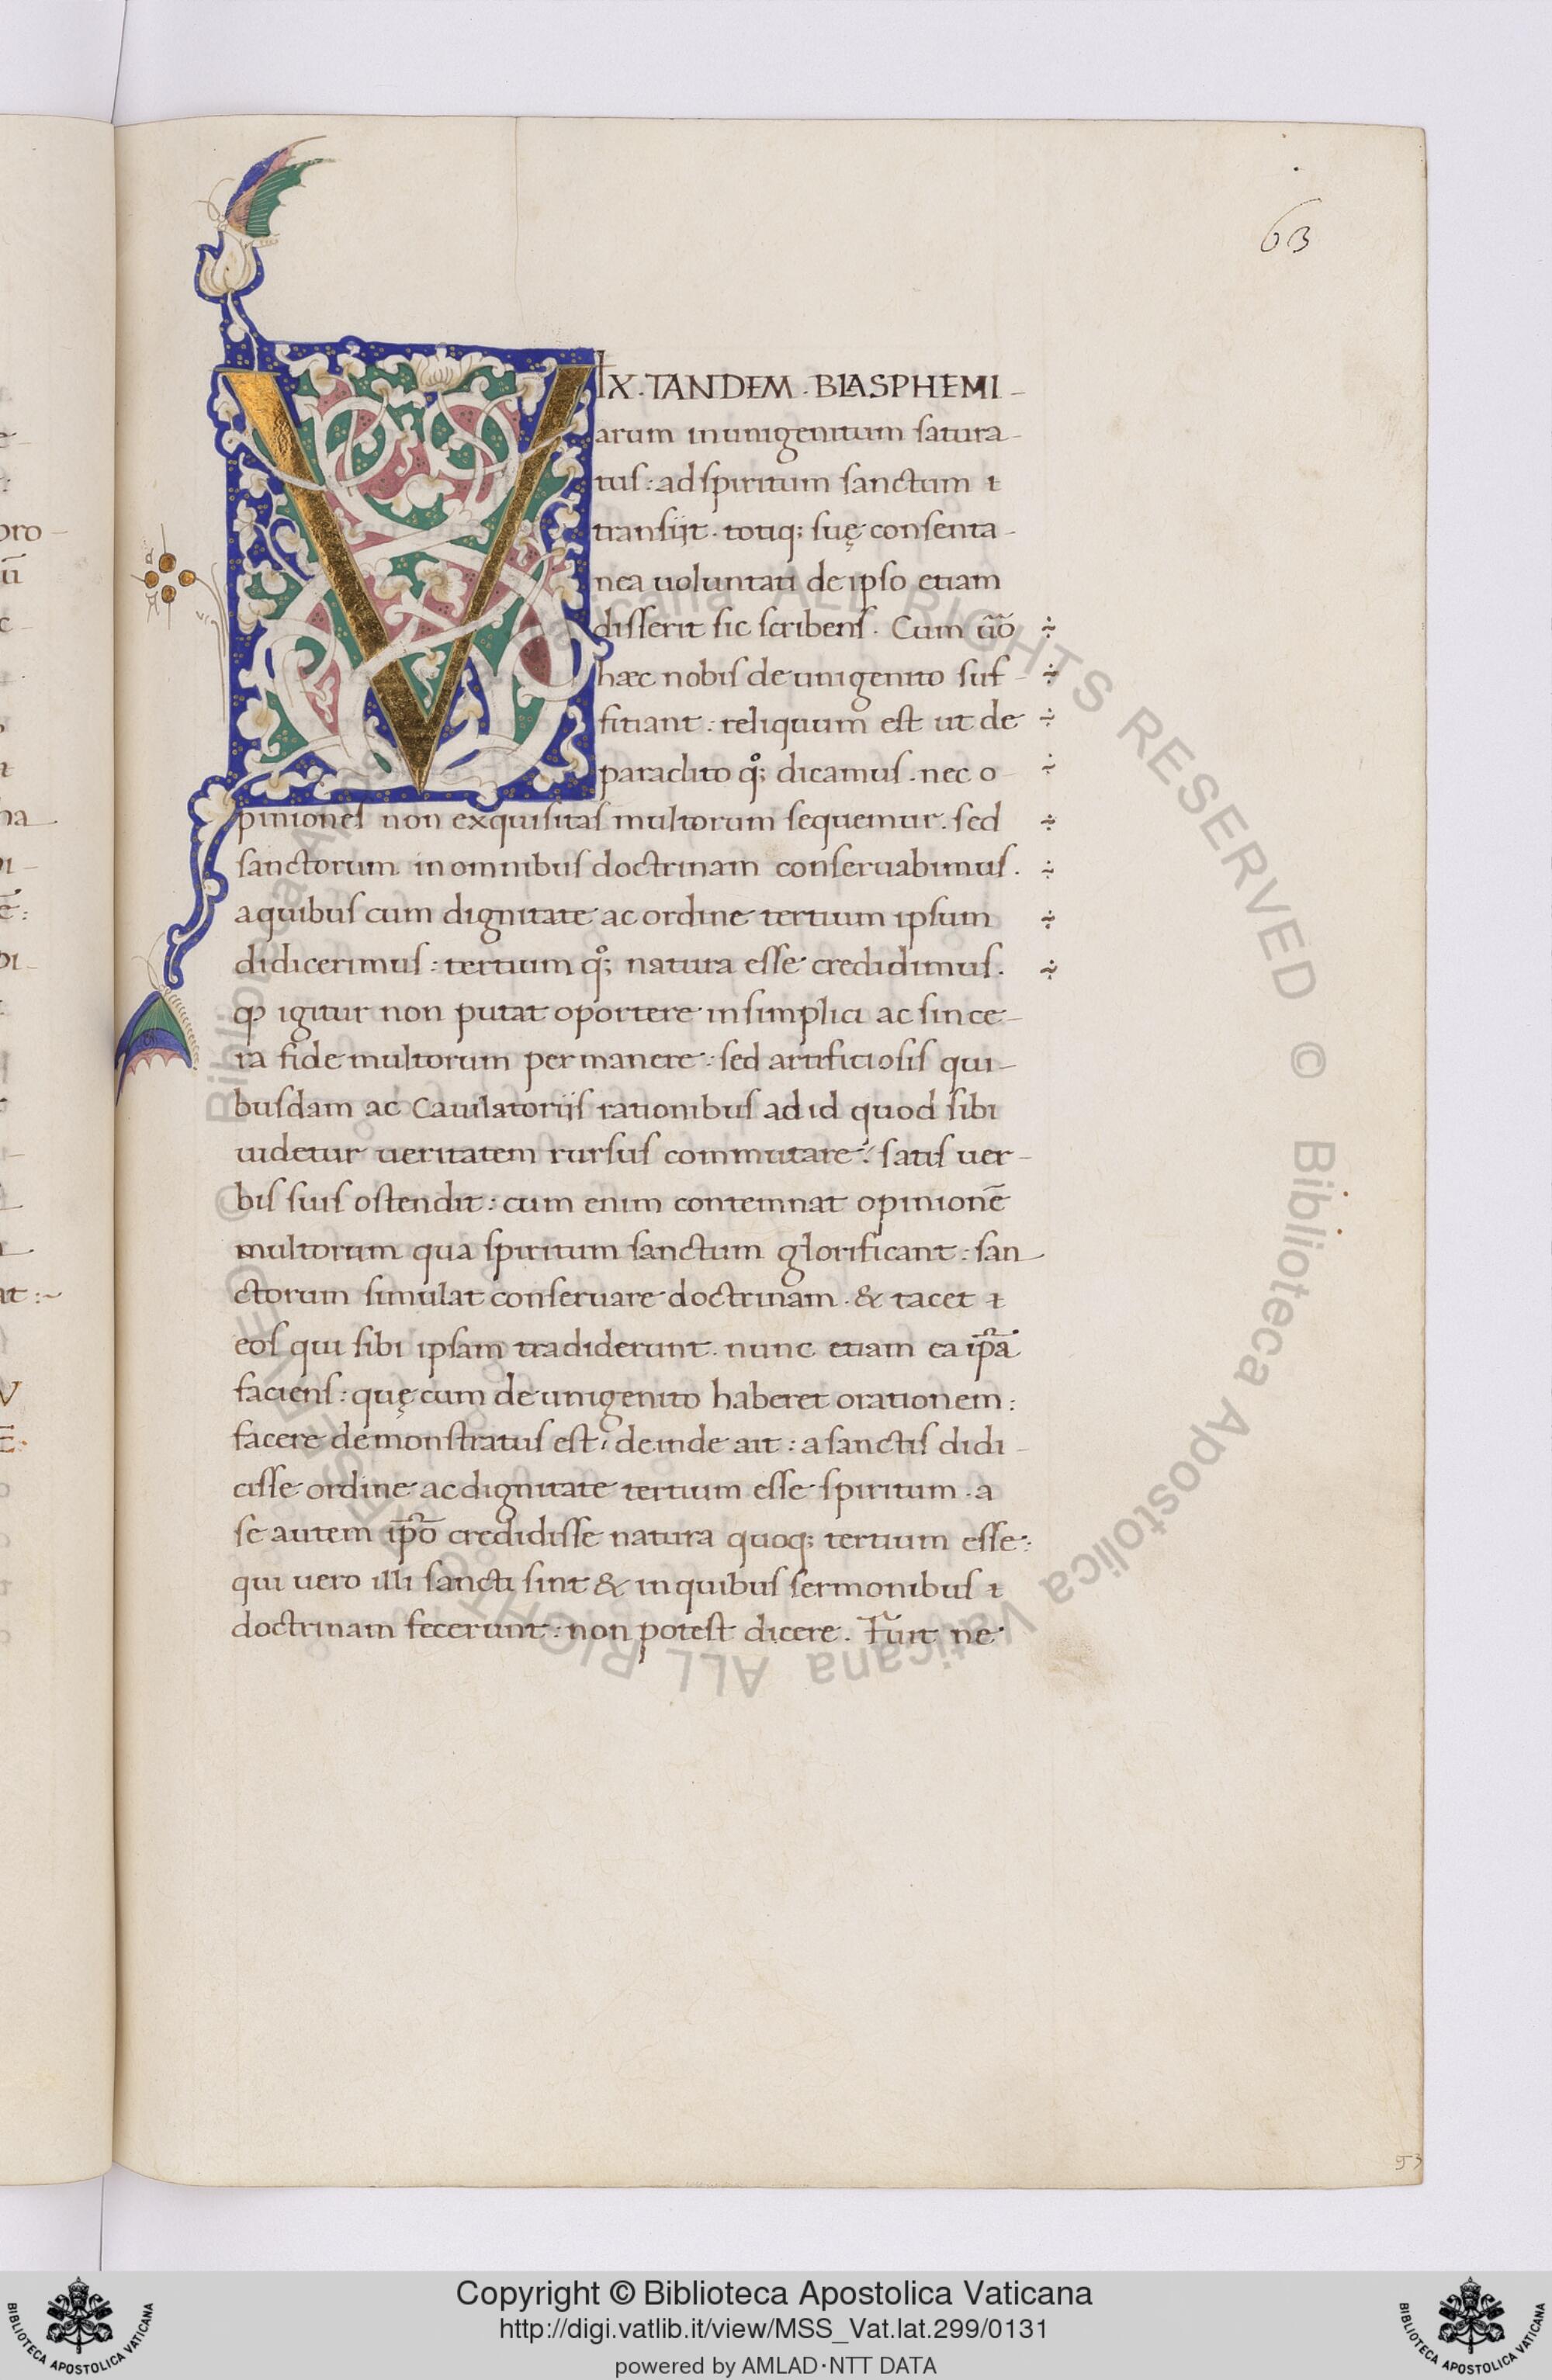 63
VIX. TANDEM. BLASPHEMI-
arum inunigenitum satura-
tus: ad spiritum sanctum ⁊
transijt. totiq; suę consenta-
nea uoluntati de ipso etiam
disserit sic scribens. Cum ūo
hæc nobis de unigenito suf-
fitiant: reliquum est ut de
paraclito qͦ; dicamus. nec o
piniones non exquisitas multorum sequemur. sed
sanctorum in omnibus doctrinam conseruabimus.
a quibus cum dignitate ac ordine tertium ipsum
didicerimus: tertium qͦ; natura esse credidimus.
ꝙ igitur non putat oportere in simplici ac since-
ra fide multorum permanere: sed artifitiosis qui-
busdam ac Cauilatorijs rationibus ad id quod sibi
uidetur ueritatem rursus commutare: satis uer-
bis suis ostendit: cum enim contemnat opinionē
multorum qua spiritum sanctum glorificant: san-
ctorum simulat conseruare doctrinam. & tacet ⁊
eos qui sibi ipsam tradiderunt. nunc etiam ea ip̄a
faciens: quę cum de unigenito haberet orationem:
facere demonstratus est; deinde ait: a sanctis didi-
cisse ordine ac dignitate tertium esse spiritum. a
se autem ip̄o credidisse natura quoq; tertium esse:
qui uero illi sancti sint & in quibus sermonibus ⁊
doctrinam fecerunt: non potest dicere. Fuit ne
93
Copyright © Biblioteca Apostolica Vaticana
http://digi.vatlib.it/view/MSS_Vat.lat.299/0131
powered by AMLAD·NTT DATA
BIBLIOTECA APOSTOLICA VATICANA
BIBLIOTECA APOSTOLICA VATICANA